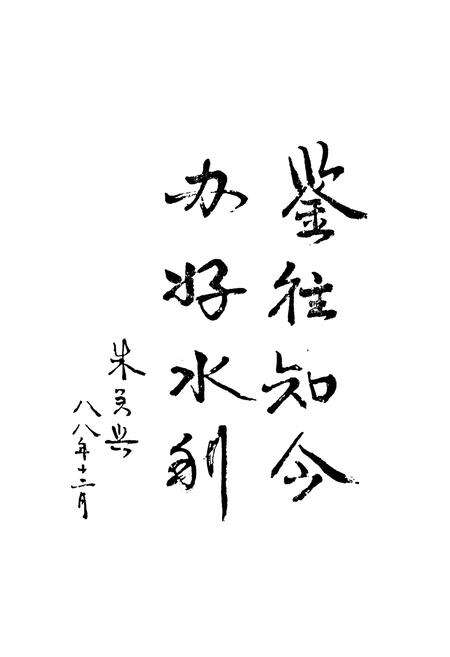 鉴往知今
办好水利
朱
兴
八八年十二月